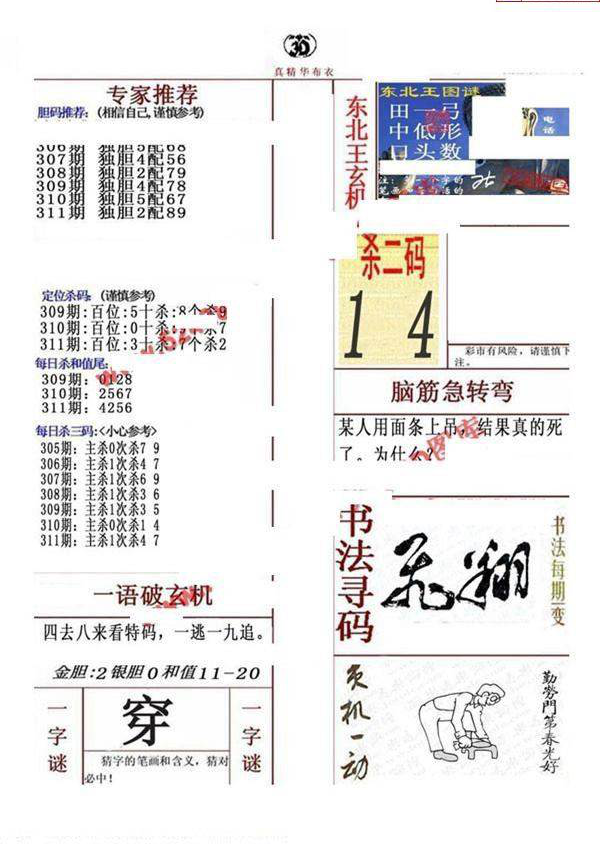 3D
真精华布衣
专家推荐
胆码推荐：(相信自己，谨慎参考)
306期 独胆3配68
307期 独胆4配56
308期 独胆2配79
309期 独胆4配78
310期 独胆5配67
311期 独胆2配89
定位杀码：(谨慎参考)
309期:百位:5十杀:8个杀9
310期:百位:0十杀: 杀7
311期:百位:3十杀:7个杀2
每日杀和值尾：
309期：0128
310期：2567
311期：4256
每日杀三码:<小心参考>
305期：主杀0次杀7 9
306期：主杀1次杀4 7
307期：主杀1次杀6 9
308期：主杀1次杀3 6
309期：主杀1次杀3 5
310期：主杀0次杀1 4
311期：主杀1次杀4 7
一语破玄机
四去八来看特码，一逃一九追。
金胆:2银胆0和值11-20
一字谜
穿
猜字的笔画和含义，猜对必中！
一字谜
东北王玄机
东北王图谜
田一弓
中低形
口头数
电话
杀二码
1 4
彩市有风险，请谨慎下
注。
脑筋急转弯
某人用面条上吊，结果真的死
了。为什么？
书法寻码
飞翔
书法每期一变
灵机一动
勤劳門第春光好